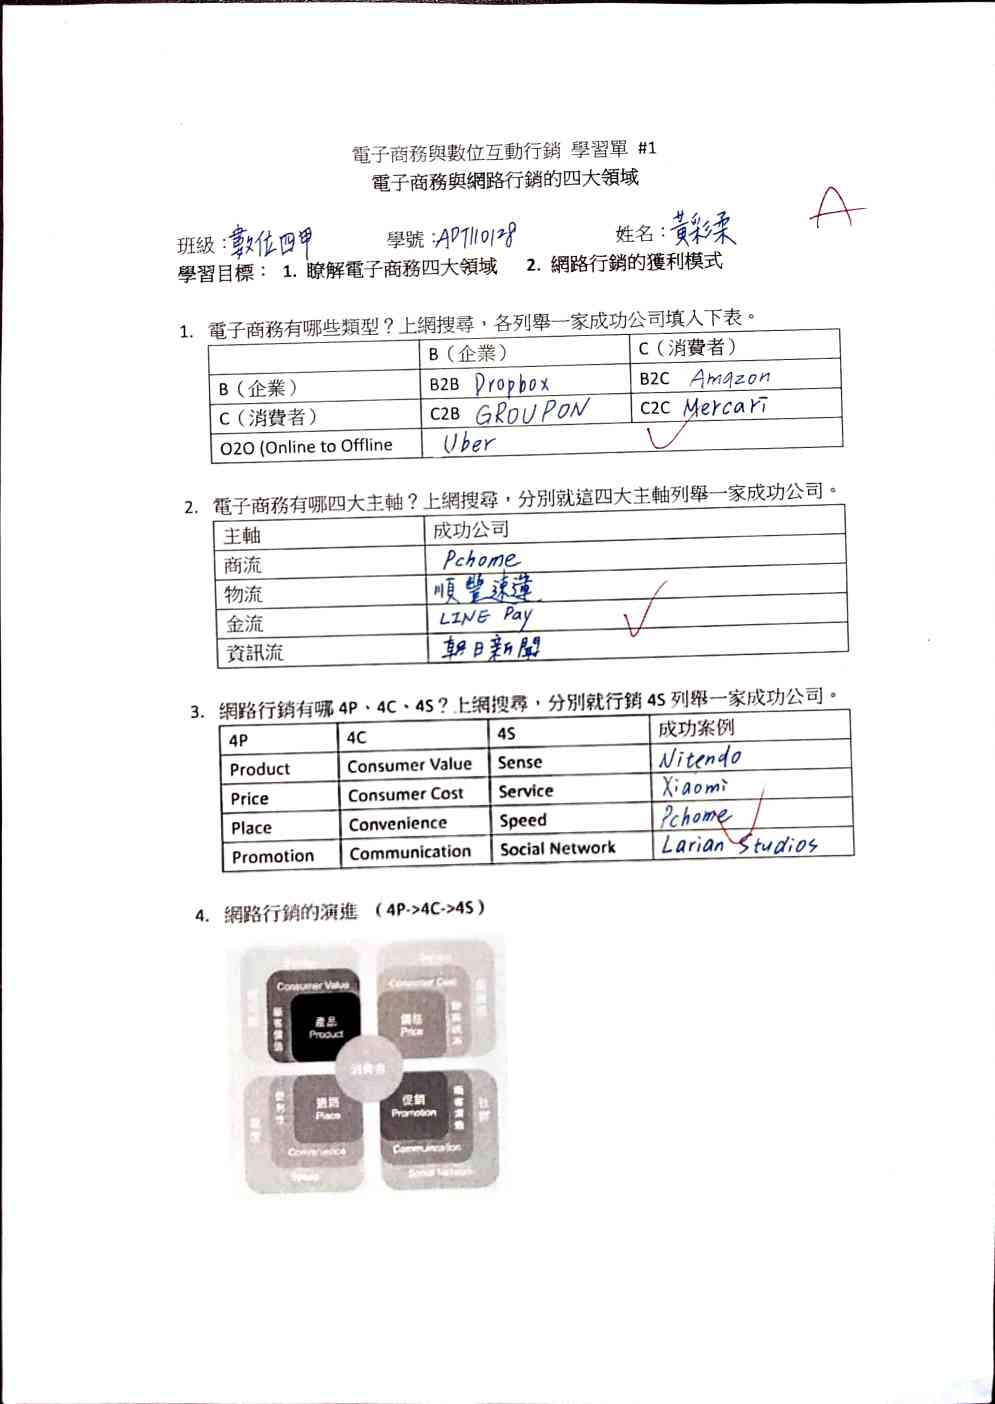 電子商務與數位互動行銷 學習單 #1
電子商務與網路行銷的四大領域
A
班級：數位四甲 學號：APT110128 姓名：黃彩柔
學習目標： 1. 瞭解電子商務四大領域 2. 網路行銷的獲利模式
1. 電子商務有哪些類型？上網搜尋，各列舉一家成功公司填入下表。
B（企業） C（消費者）
B（企業） B2B Dropbox B2C Amazon
C（消費者） C2B GROUPON C2C Mercari
O2O (Online to Offline Uber
2. 電子商務有哪四大主軸？上網搜尋，分別就這四大主軸列舉一家成功公司。
主軸 成功公司
商流 Pchome
物流 順豐速運
金流 LINE Pay
資訊流 朝日新聞
3. 網路行銷有哪 4P、4C、4S？上網搜尋，分別就行銷 4S 列舉一家成功公司。
4P 4C 4S 成功案例
Product Consumer Value Sense Nitendo
Price Consumer Cost Service Xiaomi
Place Convenience Speed Pchome
Promotion Communication Social Network Larian Studios
4. 網路行銷的演進 （4P->4C->4S）
Consumer Value Consumer Cost
顧客價值 產品 Product 價格 Price
消費者
便利性 通路 Place 促銷 Promotion 社群
Convenience Communication
Speed Social Network